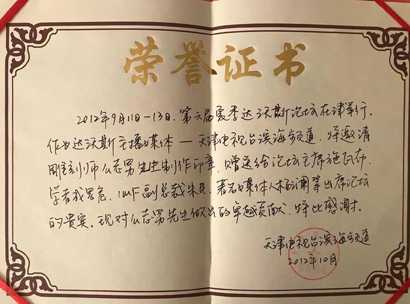 荣誉证书
2012年9月11日-13日,第六届夏季达沃斯论坛在津举行,
作为达沃斯主播媒体——天津电视台滨海频道,特邀请
雕刻师公志男先生制作印章,赠送给论坛主席施瓦布、
学者 IMF副总裁朱民、著名媒体人杨澜等出席论坛
的贵宾。现对公志男先生做出的卓越贡献,特此感谢。
天津电视台滨海频道
2012年10月